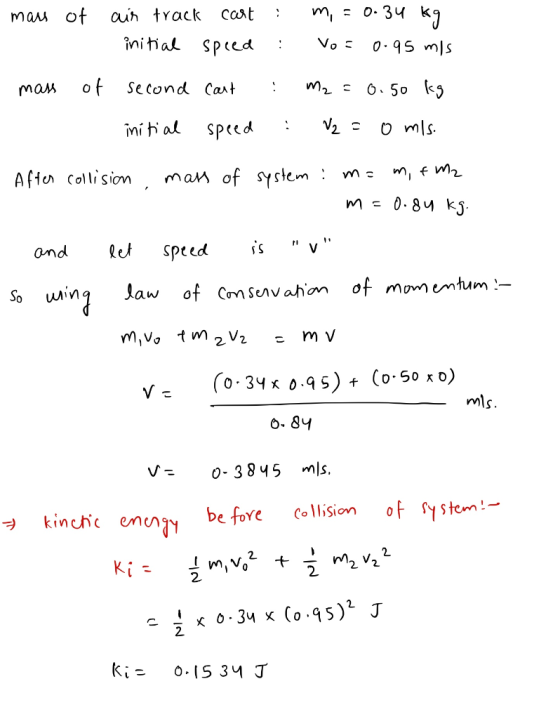 mass of air track cart : m₁ = 0.34 kg
initial speed : V₀ = 0.95 m/s
mass of second cart : m₂ = 0.50 kg
initial speed : V₂ = 0 m/s.
After collision, mass of system : m = m₁ + m₂
m = 0.84 kg.
and let speed is "v"
So using law of conservation of momentum :-
m₁v₀ + m₂v₂ = mv
v = (0.34 x 0.95) + (0.50 x 0) / 0.84 m/s.
v = 0.3845 m/s.
⇒ kinetic energy before collision of system :-
Ki = 1/2 m₁v₀² + 1/2 m₂v₂²
= 1/2 x 0.34 x (0.95)² J
Ki = 0.1534 J